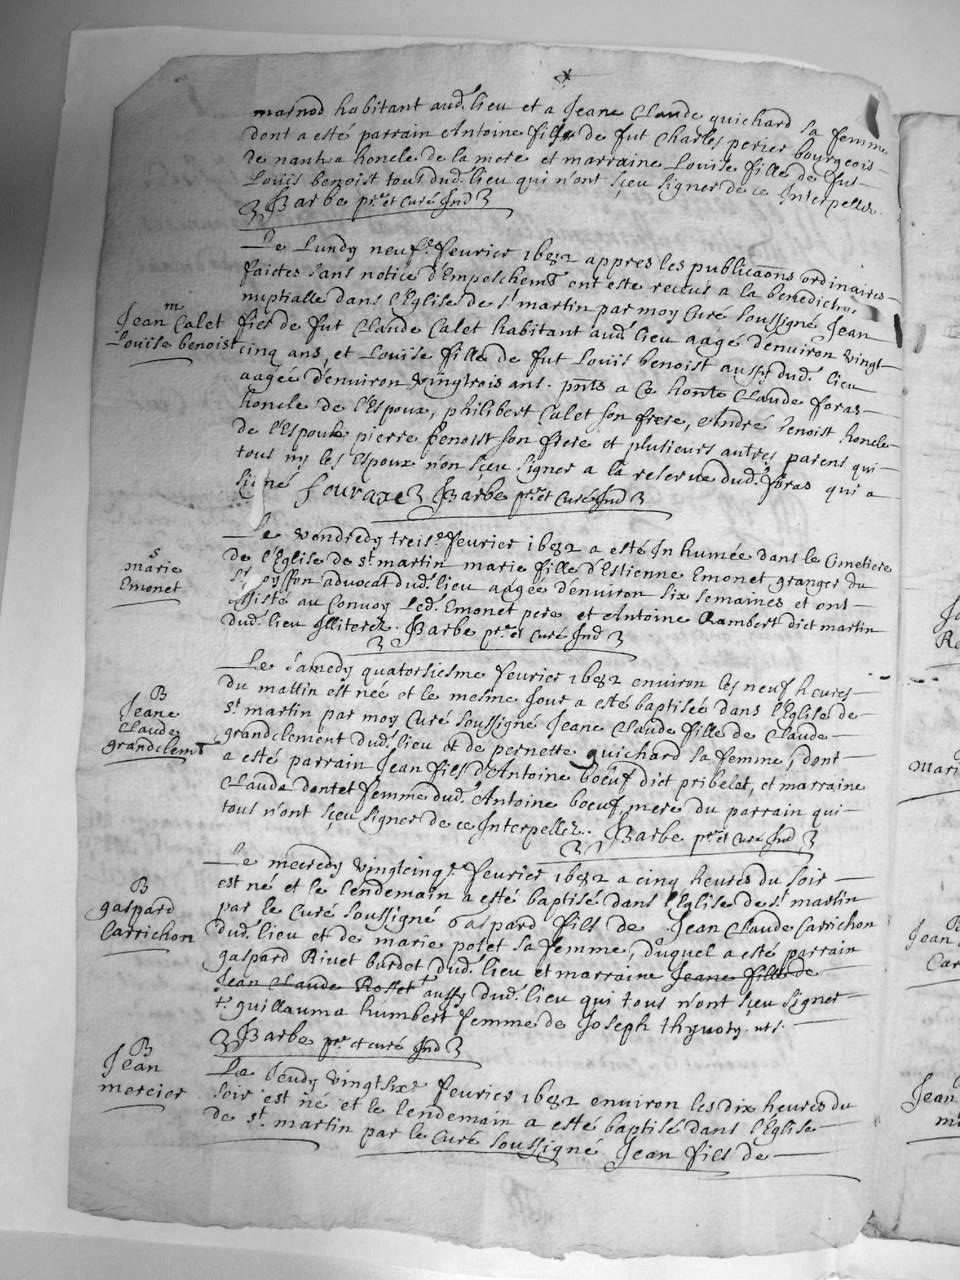 marnod habitant aud. lieu et a Jeane Claude guichard sa femme
dont a esté parrain Antoine fils de fut Charles perier bourgeois
de nantua honcle de la mere et marraine Louise fille de fut
Louis benoist tous dud. lieu qui n'ont sçeu signer de ce Interpellez.
Barbe ptre et Curé Ind
Le Lundy neufe. feurier 1682 appres les publicaons ordinaires
faictes sans notice d'Empeschemt. ont este receus a la benediction
nuptialle dans l'Eglise de st. martin par moy Curé soussigné Jean
m
Jean Calet
Louise benoist
fils de fut Claude Calet habitant aud. lieu aagé d'enuiron vingt
cinq ans, et Louise fille de fut Louis benoist aussy dud. lieu
aagée d'enuiron vingtrois ans. pnts a ce honte. Claude foras
honcle de l'Espoux, philibert Calet son frere, Andre benoist honcle
de l'Espouse pierre benoist son frere et plusieurs autres parens qui
tous ny les Espoux n'on sçeu signer a la reserue dud. foras qui a
signé Barbe ptre et Curé Ind
s
marie
Emonet
Le vendredy treise. feurier 1682 a esté Inhumée dans le Cimetiere
de l'Eglise de st. martin marie fille d'Estienne Emonet, granger du
sr. advocat dud. lieu aagée d'enuiron six semaines et ont
Assisté au Conuoy Led. Emonet pere et Antoine Rambert dict martin
dud. lieu Illiterez. Barbe ptre et Curé Ind
B
Jeane
Claude
grandclemt
Le Samedy quatorsiesme feurier 1682 enuiron les neuf heures
du mattin est née et le mesme Jour a esté baptisée dans l'Eglise de
st. martin par moy Curé soussigné Jeane Claude fille de Claude
grandclement dud. lieu et de pernette guichard sa femme, dont
a esté parrain Jean fils d'Antoine boeuf dict pribelet, et marraine
Claude dentet femme dud. Antoine boeuf mere du parrain qui
tous n'ont sçeu signer de ce Interpellez. Barbe ptre et Curé Ind
B
gaspard
Carrichon
Le mecredy vingtcinqe. feurier 1682 a cinq heures du soir
est né et le lendemain a esté baptisé dans l'Eglise de st. martin
par le Curé soussigné Gaspard fils de Jean Claude Carrichon
dud. lieu et de marie potet sa femme, duquel a esté parrain
gaspard Riuet burdet dud. lieu et marraine Jeane fille de
Jean Claude Rosset aussy dud. lieu qui tous n'ont sçeu signer
guillauma humbert femme de Joseph
Barbe ptre et curé Ind
B
Jean
mercier
Le Jeudy vingtsixe. feurier 1682 enuiron les dix heures du
soir est né et le lendemain a esté baptisé dans l'Église
de st. martin par le Curé soussigné Jean fils de